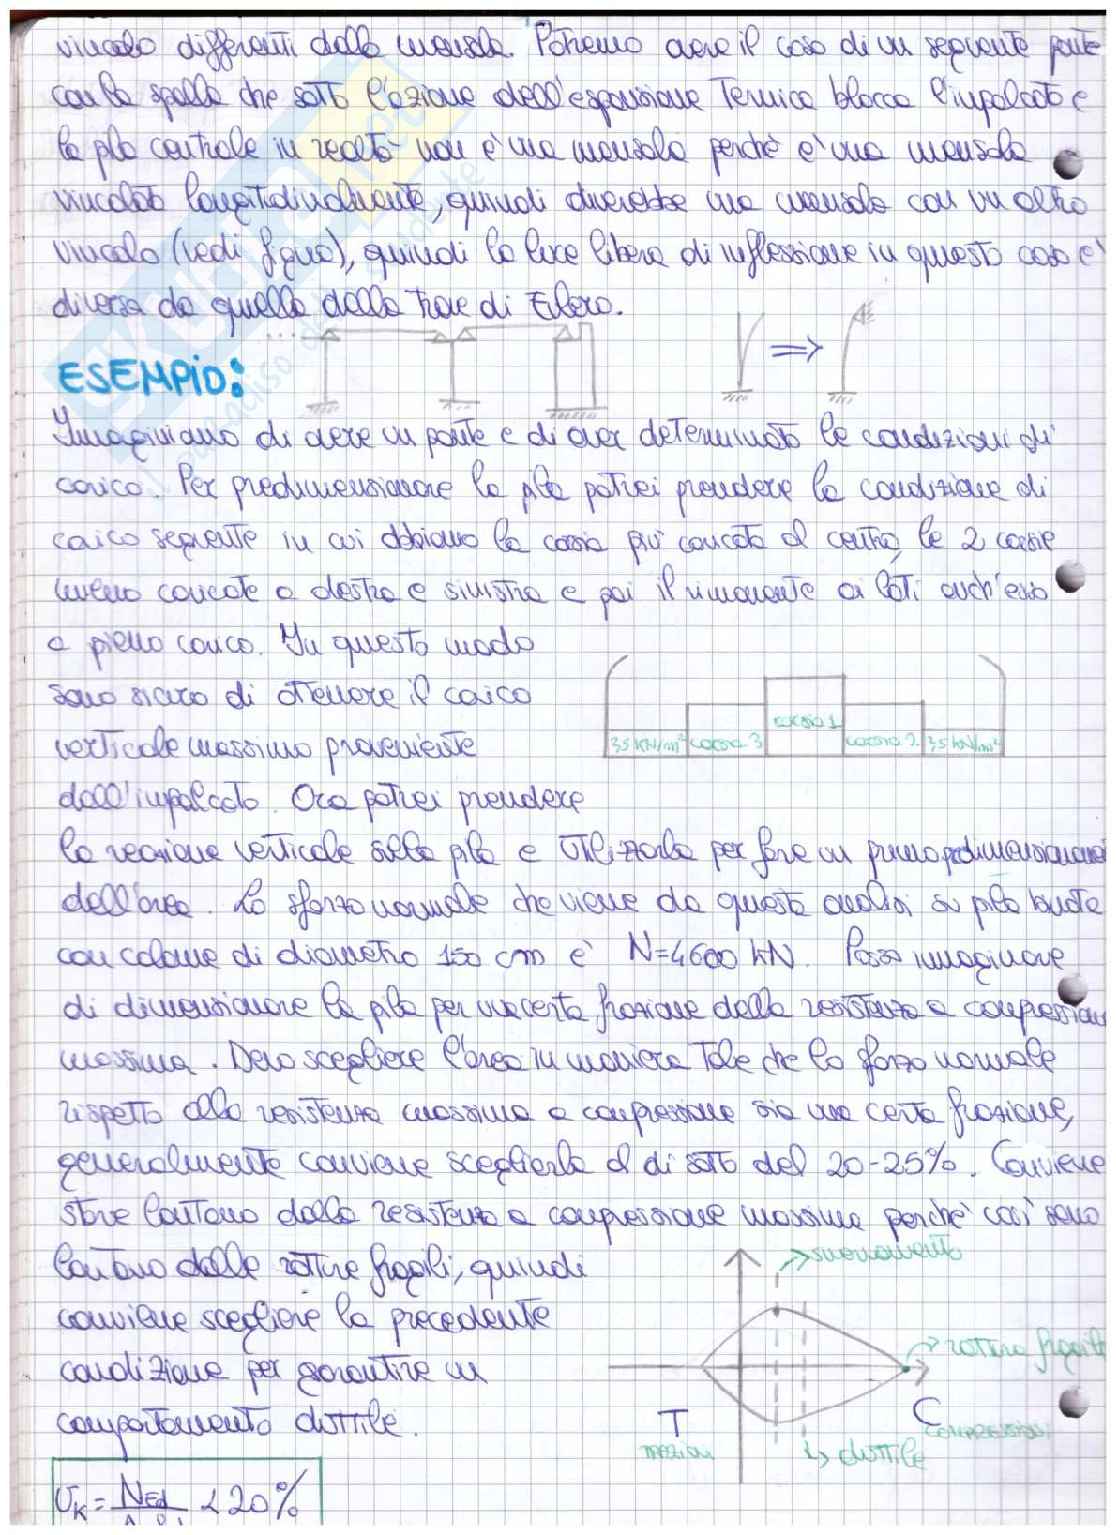 vincolo differenti dalla mensola. Potremo avere il caso di un seguente ponte
con la spalla che sotto l'azione dell'espansione Termica blocca l'impalcato e
la pila centrale in realtà non è una mensola perchè è una mensola
vincolata longitudinalmente, quindi diverebbe una mensola con un altro
vincolo (vedi figura), quindi la luce libera di inflessione in questo caso è
diversa da quella della trave di Eulero.
ESEMPIO:
Immaginiamo di avere un ponte e di aver determinato le condizioni di
carico. Per predimensionare la pila potrei prendere la condizione di
carico seguente in cui abbiamo la corsia più caricata al centro, le 2 corsie
meno caricate a destra e sinistra e poi il rimanente ai lati anch'esso
a pieno carico. In questo modo
sono sicuro di ottenere il carico
verticale massimo proveniente
dall'impalcato. Ora potrei prendere
corsia 1
3,5 kN/m² corsia 3 corsia 2 3,5 kN/m²
la reazione verticale sulla pila e utilizzarla per fare un primo predimensionamento
dell'area. Lo sforzo normale che viene da questa analisi su pila
con colonne di diametro 150 cm è N=4600 kN. Posso immaginare
di dimensionare la pila per una certa frazione della resistenza a compressione
massima. Devo scegliere l'area in maniera Tale che lo sforzo normale
rispetto alla resistenza massima a compressione sia una certa frazione,
generalmente conviene sceglierla al di sotto del 20-25%. Conviene
stare lontano dalla resistenza a compressione massima perchè così sono
lontano dalle rotture fragili, quindi
conviene scegliere la precedente
condizione per garantire un
comportamento duttile.
snervamento
rottura fragile
T
trazioni
C
compressioni
duttile
σK = NEd < 20%